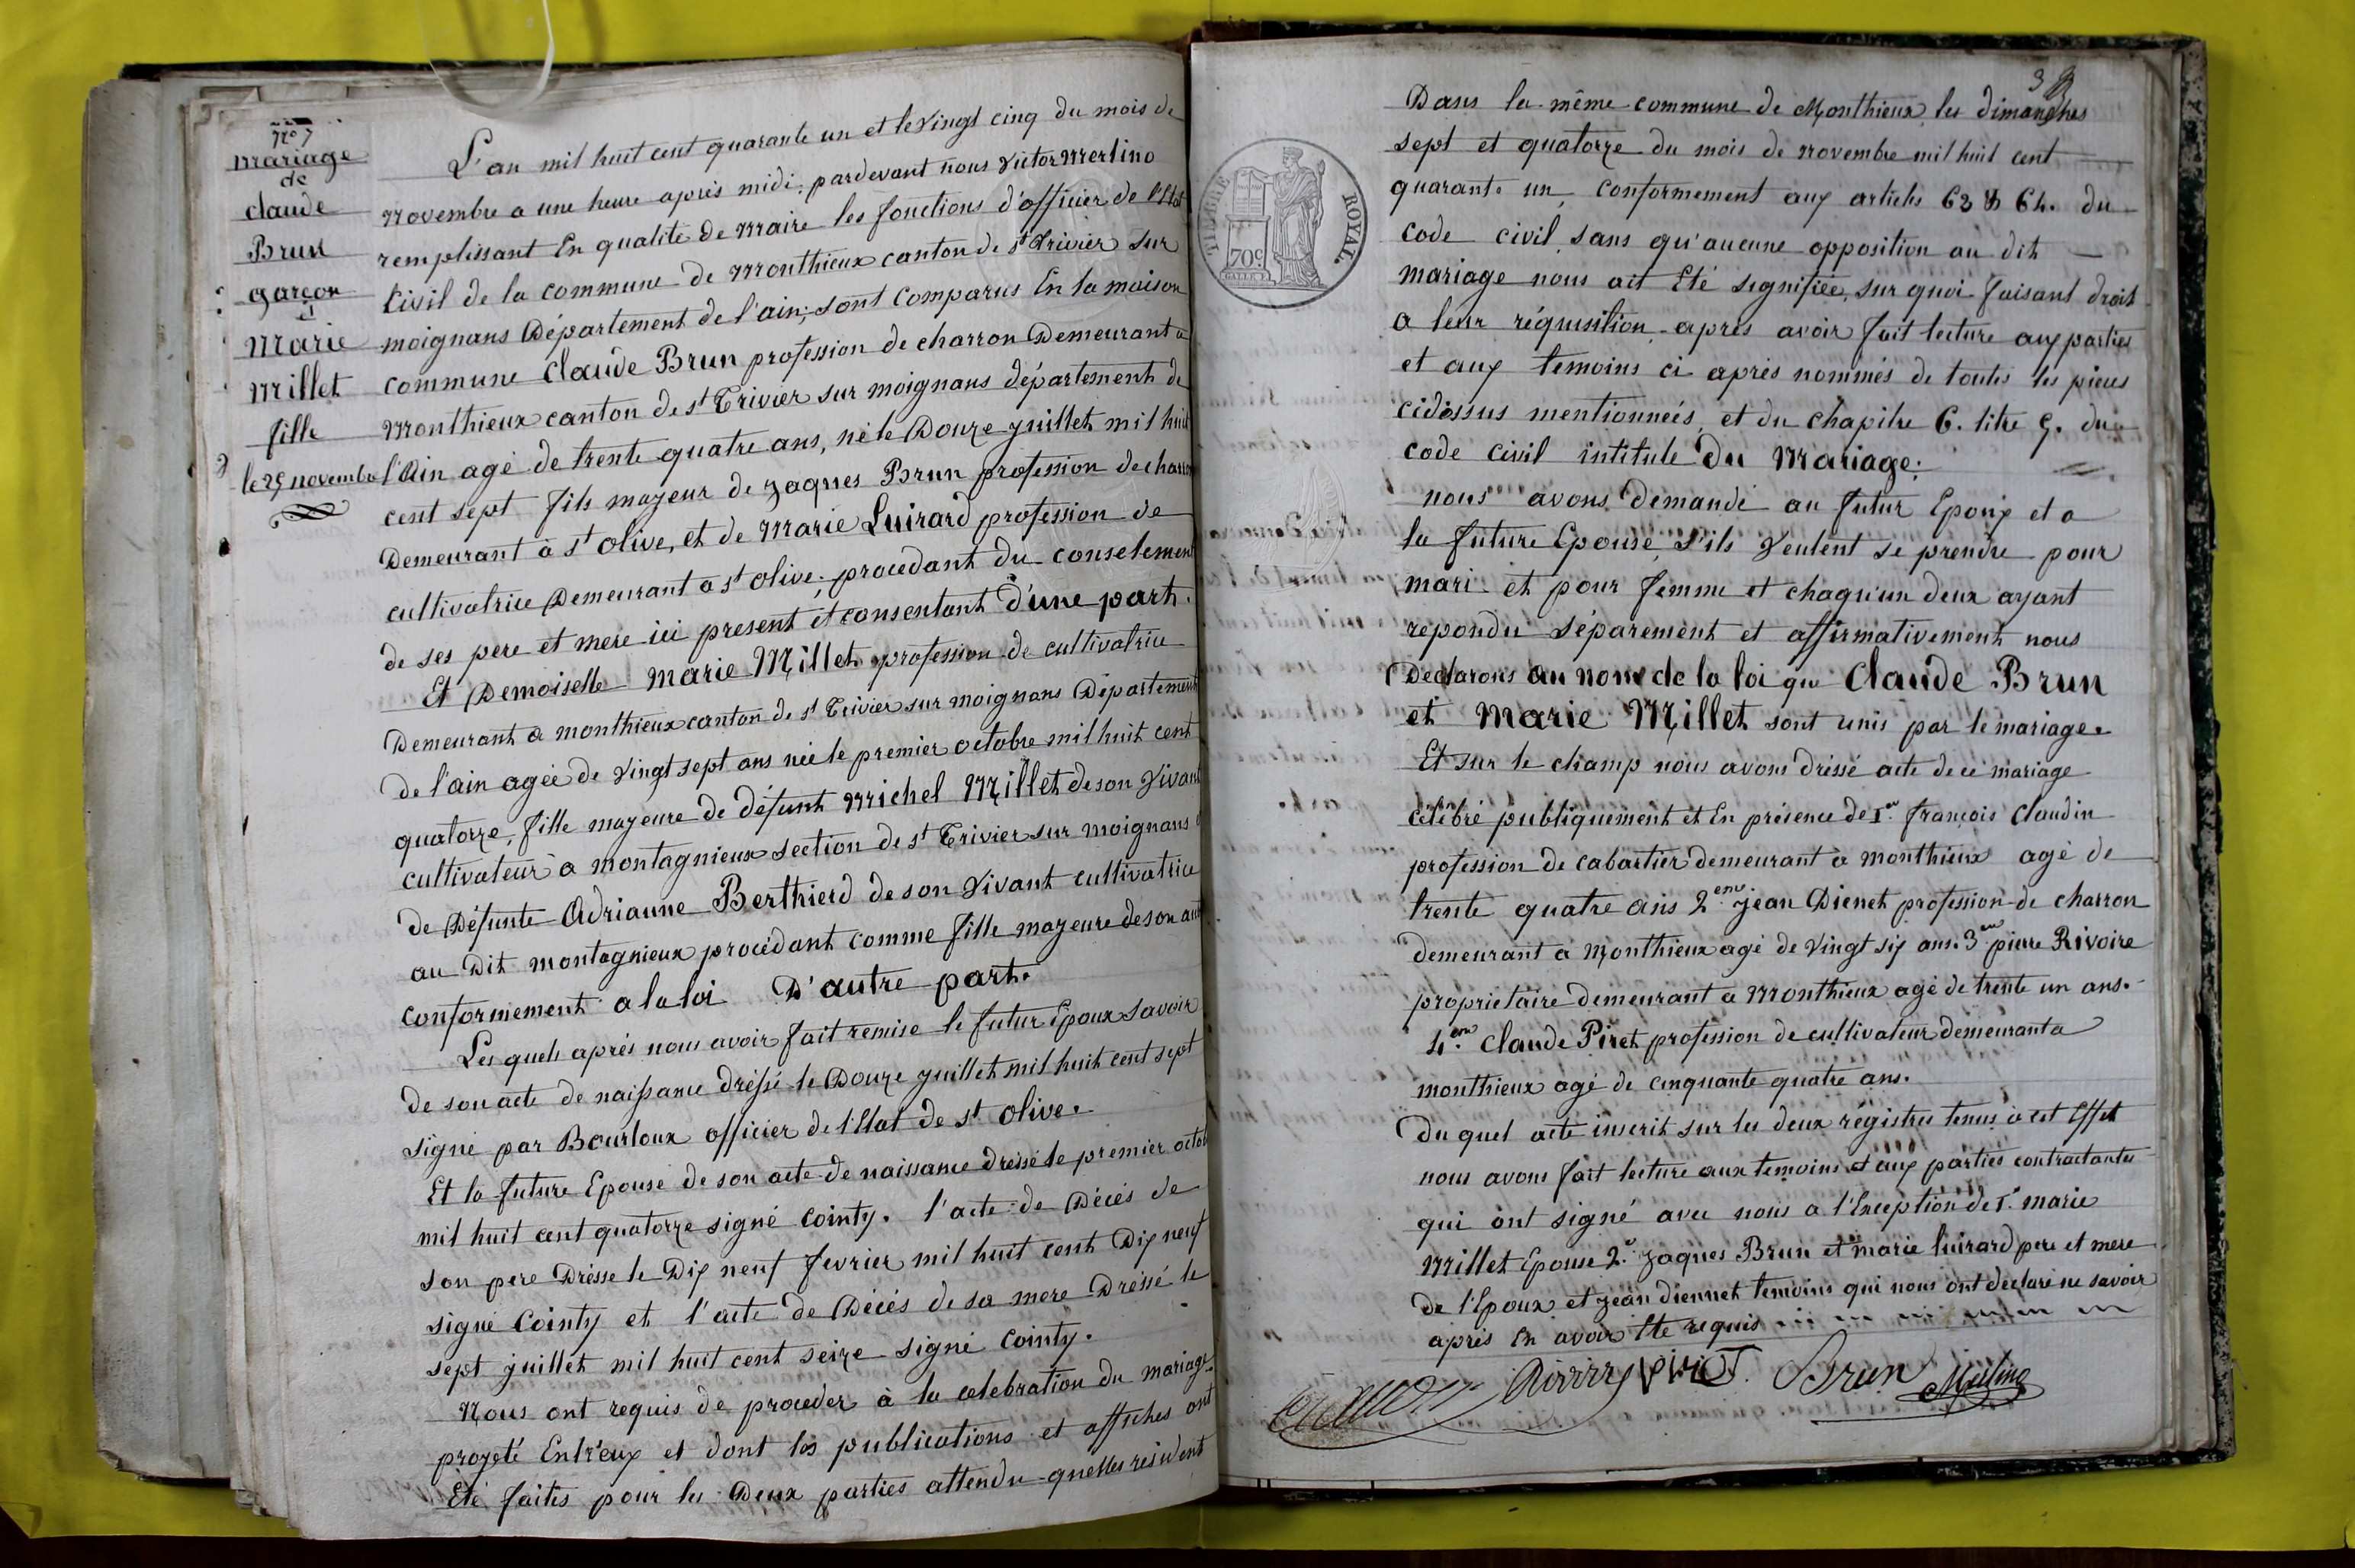 N° 7
mariage
de
claude
Brun
garçon
et
Marie
Millet
fille
le 25 novembre
L'an mil huit cent quarante un et le vingt cinq du mois de
novembre a une heure après midi, pardevant nous Victor Merlino
remplissant En qualité de Maire les fonctions d'officier de l'Etat
Civil de la commune de Monthieux canton de st Trivier sur
moignans Département de l'ain, sont Comparus En la maison
commune Claude Brun profession de charron Demeurant a
Monthieux canton de st Trivier sur moignans département de
l'Ain agé de trente quatre ans, né le Douze juillet mil huit
cent sept fils mayeur de jaques Brun profession de charron
Demeurant à st olive, et de Marie Luirard profession de
cultivatrice Demeurant a st olive, procedant du consetement
de ses pere et mere ici present et consentant d'une part.
Et Demoiselle Marie Millet profession de cultivatrice
Demeurant a monthieux canton de st Trivier sur moignans Département
de l'ain agée de vingt sept ans née le premier octobre mil huit cent
quatorze, fille mayeure de défunt Michel Millet de son vivant
cultivateur a montagnieux section de st Trivier sur moignans
de Défunte Adrianne Berthierd de son vivant cultivatrice
au Dit montagnieux procédant comme fille mayeure de son aut
conformement a la loi D'autre part.
Les quels aprés nous avoir fait remise le futur Epoux savoir
de son acte de naissance dréssé le Douze juillet mil huit cent sept
signé par Bourloux officier de l'Etat de st olive.
Et la future Epouse de son acte de naissance dressé le premier octob
mil huit cent quatorze signé Cointy. l'acte de Décés de
son pere Drésse le Dix neuf fevrier mil huit cent Dix neuf
signé Cointy et l'acte de Décés de sa mere Dressé le
sept juillet mil huit cent seize signé Cointy.
Nous ont requis de proceder à la celebration du mariage
projeté Entr'eux et dont les publications et affiches ont
Eté faites pour les Deux parties attendu quelles resident
TIMBRE ROYAL.
70c
Dans la même commune de Monthieux les dimanches
sept et quatorze du mois de novembre mil huit cent
quarante un, conformement aux articles 63 & 64. du
code civil sans qu'aucune opposition au dit
mariage nous ait Eté signifiée, sur quoi faisant droit
a leur réquisition aprés avoir fait lecture aux parties
et aux temoins ci aprés nommés de toutes les pieces
cidéssus mentionneés, et du chapitre 6. titre 5. du
code civil intitule Du Mariage.
nous avons demandé au futur Epoux et a
la future Epouse s'ils veulent se prendre pour
mari et pour femme et chaqu'un deux ayant
repondu séparement et affirmativement nous
Declarons au nom de la loi que Claude Brun
et Marie Millet sont unis par le mariage.
Et sur le champ nous avons dréssé acte de ce mariage
célébré publiquement et En présence de 1er françois Claudin
profession de cabartier demeurant à monthieux agé de
trente quatre ans 2eme jean Dienet profession de charron
demeurant a Monthieux agé de vingt six ans. 3eme pierre Rivoire
proprietaire demeurant a Monthieux agé de trente un ans.
4eme Claude Piret profession de cultivateur demeurant a
monthieux agé de cinquante quatre ans.
Du quel acte inscrit sur les deux régistres tenus à cet Effet
nous avons fait lecture aux temoins et aux parties contractantes
qui ont signé avec nous a l'Exception de 1° marie
Millet Epouse 2° jaques Brun et marie luirard pere et mere
de l'Epoux et jean diennet temoins qui nous ont declaré ne savoir
aprés En avoir Eté requis
Brun Merlino